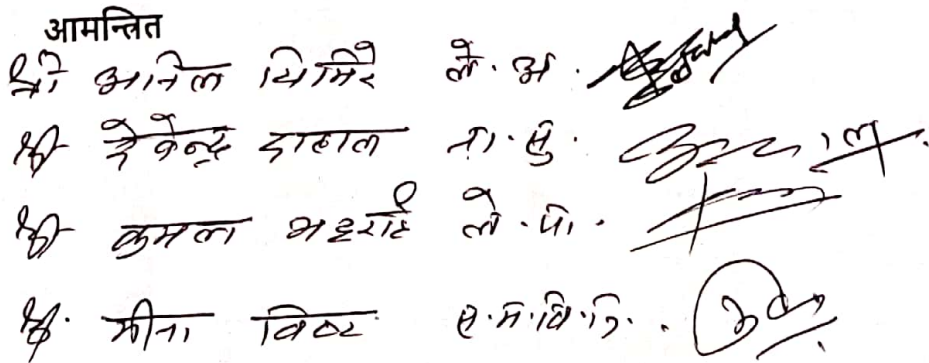 आमन्त्रित
श्री अनिल घिमिरे ले. अ.
श्री देवेन्द्र दाहाल ना. सु.
श्री कमला भट्टराई ले. पा.
श्री मीना विष्ट स.म.वि.नि.